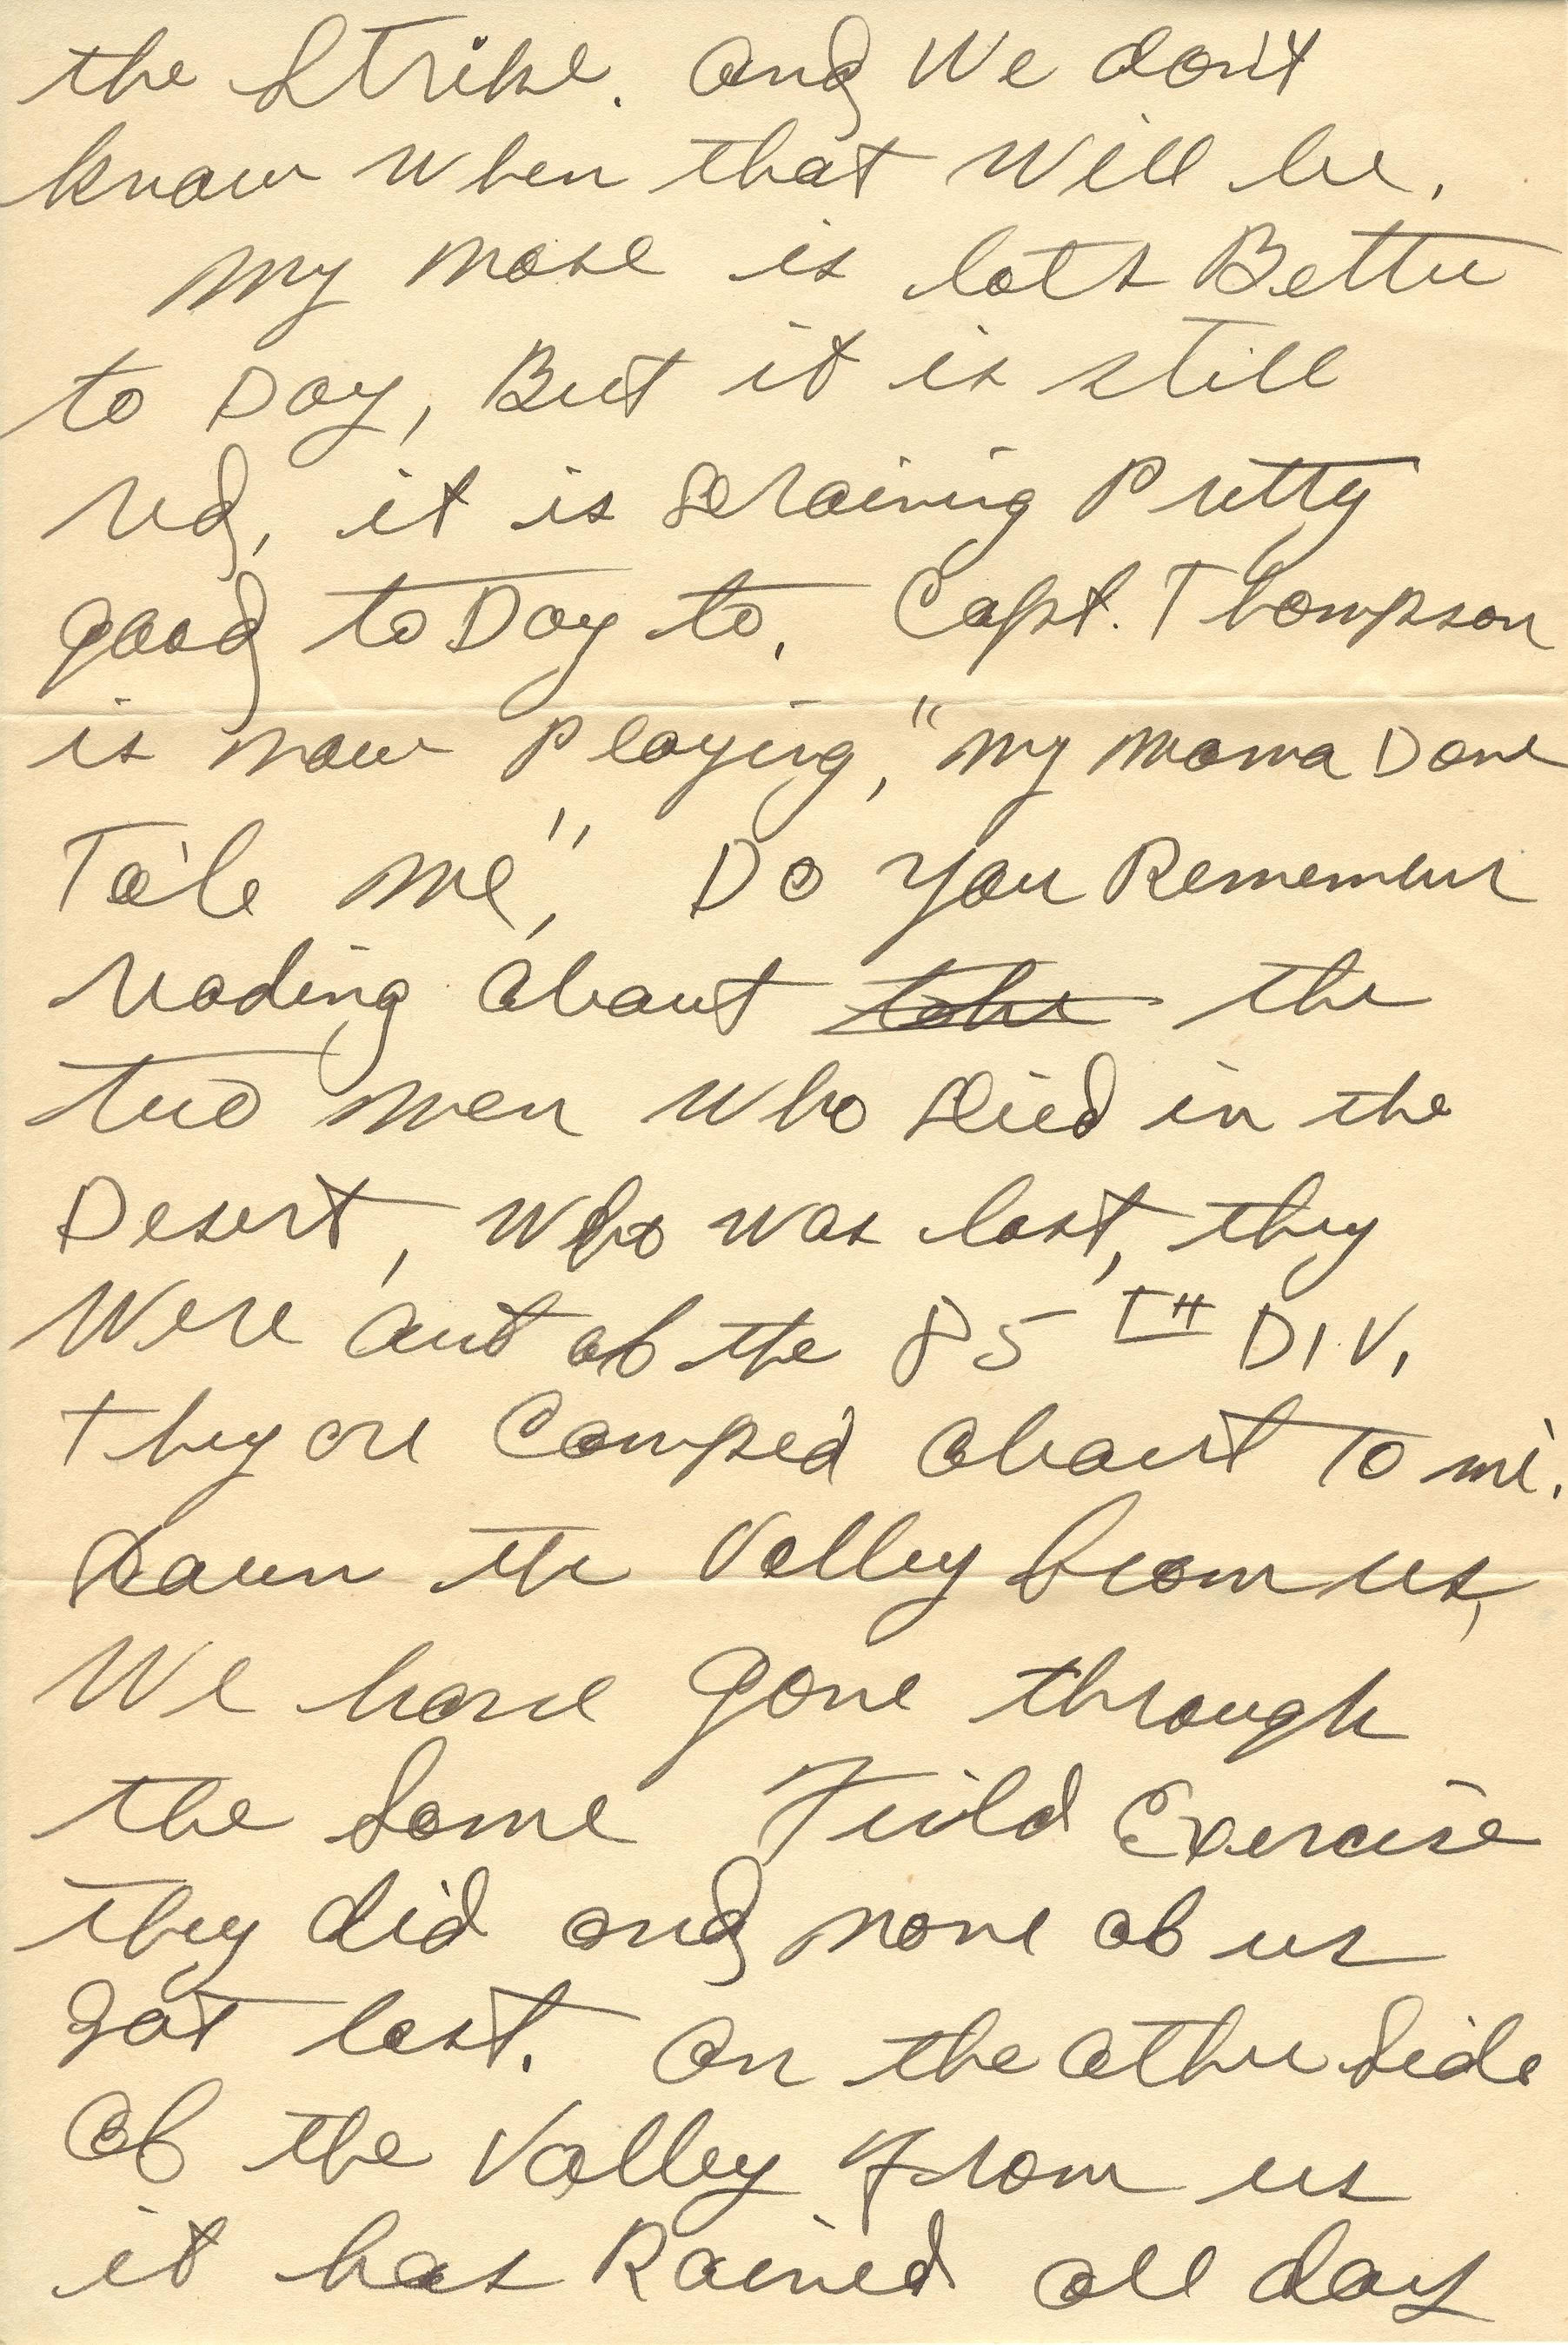 the Strike. And We don't
know when that Will be.
My nose is lots Better
to Day, But it is still
red, it is draining Pretty
good to Day to. Capt. Thompson
is now Playing, "My moma Done
Tole me", Do you Remember
reading About the
two men who Died in the
Desert, Who was lost, they
Were out of the 85TH DIV.
They are Camped About 70 mi.
Down the Valley from us,
We have gone through
the Same Feild Exercise
they did and none of us
got lost. On the other Side
Of the Valley From us
it has Rained all day